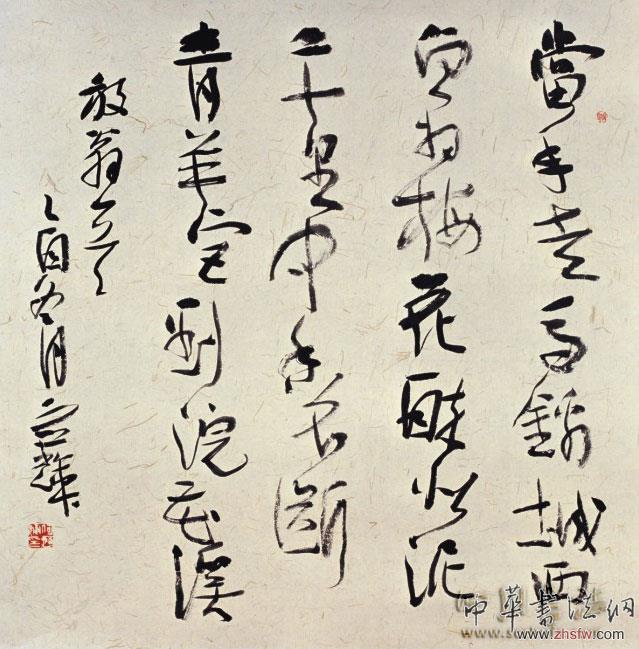 當年走馬錦城西
曾為梅花醉似泥
二十里中香不斷
青羊宮到浣花溪
放翁
乙酉冬月
中華書法網
www.zhsfw.com